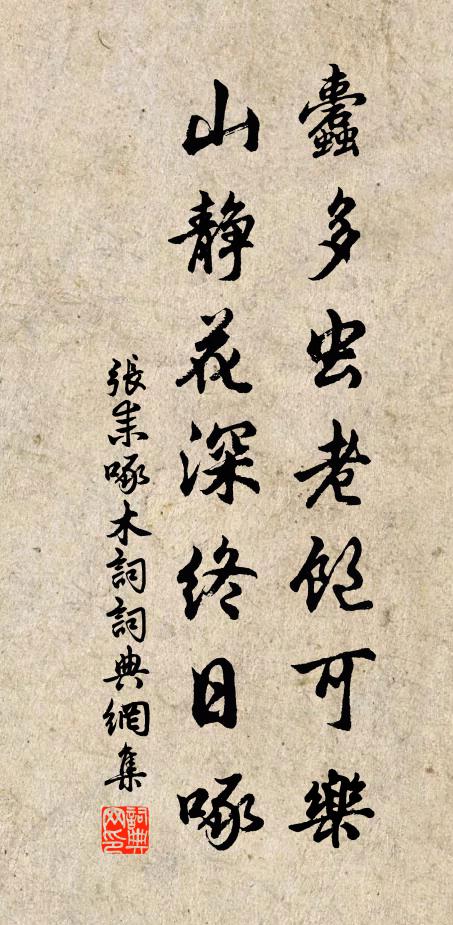 蠹多虫老飽可樂
山静花深終日啄
張耒啄木詞詞典網集
詞典网印